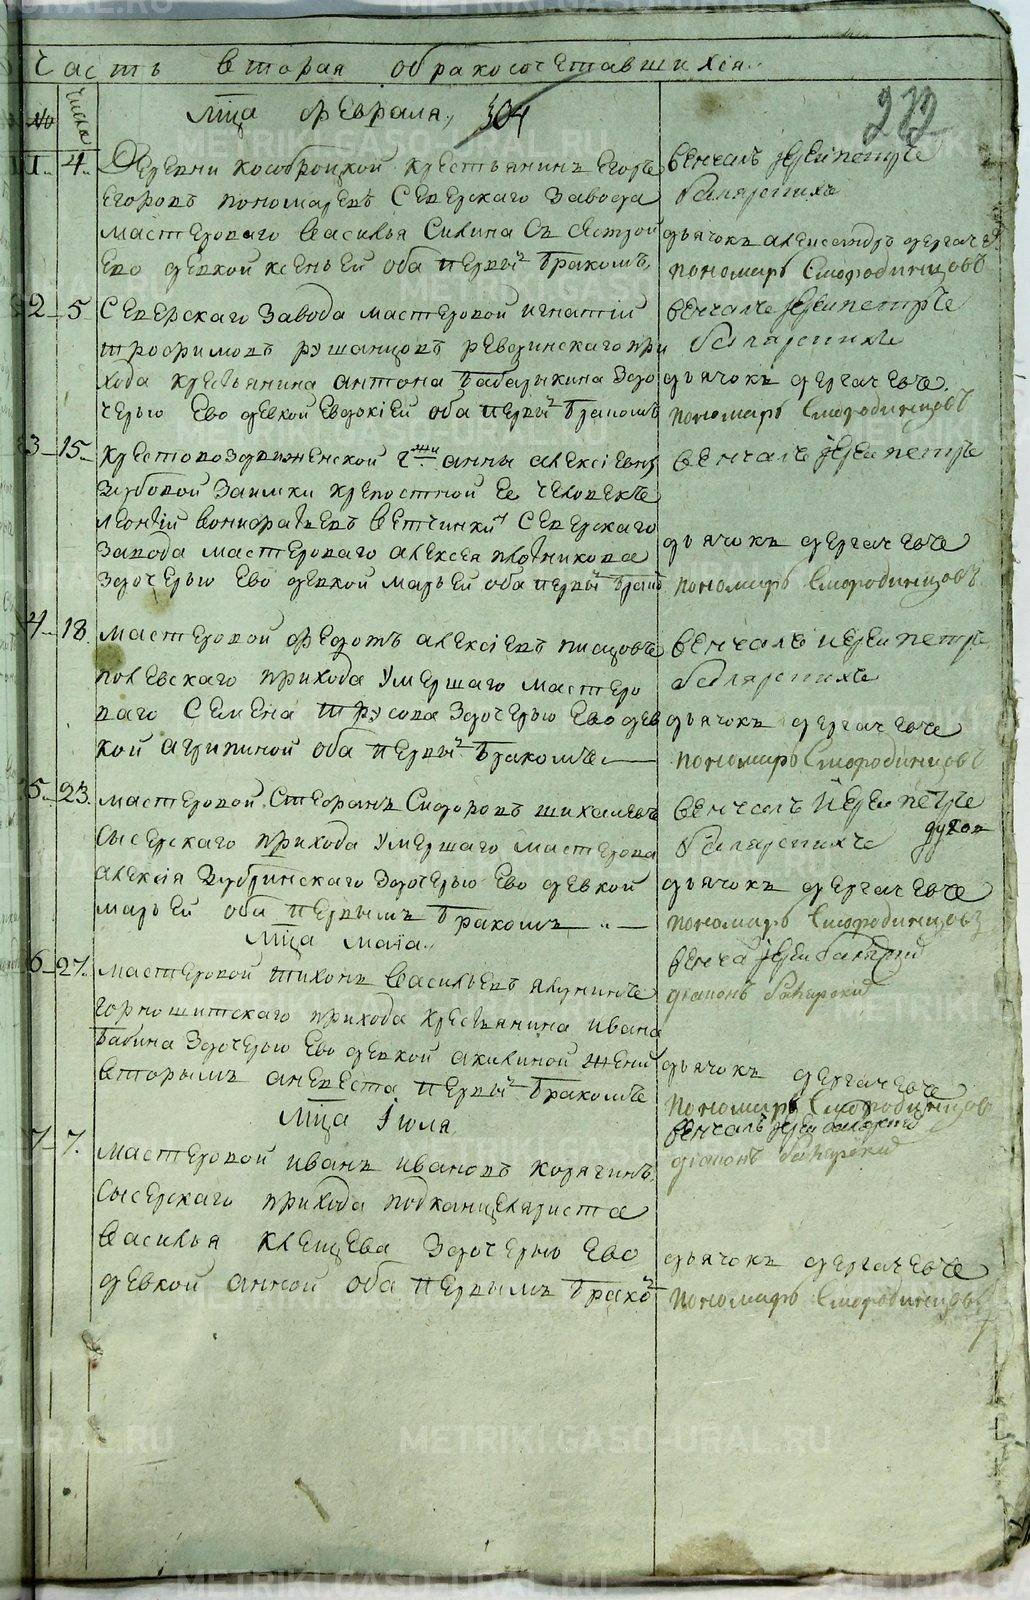 Часть вторая о бракосочетавшихся
№ числа мца февраля 304 272
1 4 Деревни Кособродской крестьянинъ Егоръ
Егоровъ Пономаревъ Северскаго завода
мастероваго Василья Силина съ сестрой
ево девкой Ксеньей оба первы бракомъ
венчалъ иерей Петръ
дьячокъ александръ дергачевъ
пономарь Смородинцовъ
2 5 Северскаго завода мастеровой Игнатий
Трофимовъ Рушанцовъ Ревдинскаго при
хода крестьянина Антона Бабарыкина здо
черью ево девкой Евдокией оба первы бракомъ
венчалъ иерей Петръ
дьячокъ дергачевъ
пономарь Смородинцовъ
3 15 Крестовоздвиженской гжи анны алексиевны
Зубовой заимки крепостной ее человекъ
леонтий Вонифатьевъ Ветчинкин Северскаго
завода мастероваго алексея плотникова
здочерью ево девкой марьей оба первы брако
венчалъ иерей петръ
дьячокъ дергачевъ
пономарь Смородинцовъ
4 18 мастеровой федотъ алексиевъ
полевскаго прихода умершаго мастеро
ваго Семена Трусова здочерью ево дев
кой агрипиной оба первы бракомъ
венчалъ иерей петръ
дьячокъ дергачевъ
пономарь Смородинцовъ
5 23 мастеровой Стефанъ Сидоровъ шихалевъ
Сысерскаго прихода умершаго мастерова
алексия Зубринскаго здочерью ево девкой
марьей оба первымъ бракомъ
венчалъ иерей петръ
дьячокъ дергачевъ
пономарь Смородинцовъ
мца маия
6 27 мастеровой тихонъ Васильевъ якунинъ
горношитскаго прихода крестьянина ивана
бабина здочерью ево девкой акилиной жени
вторымъ аневеста первы бракомъ
диаконъ
дьячокъ дергачевъ
пономарь Смородинцов
мца Июля
7 7 мастеровой иванъ ивановъ корягинъ
Сысерскаго прихода подканцеляриста
Василья клещева здочерью ево
девкой анной оба первымъ брако
венчалъ иерей
диаконъ
дьячокъ дергачевъ
пономарь Смородинцовъ
METRIKI.GASO-URAL.RU